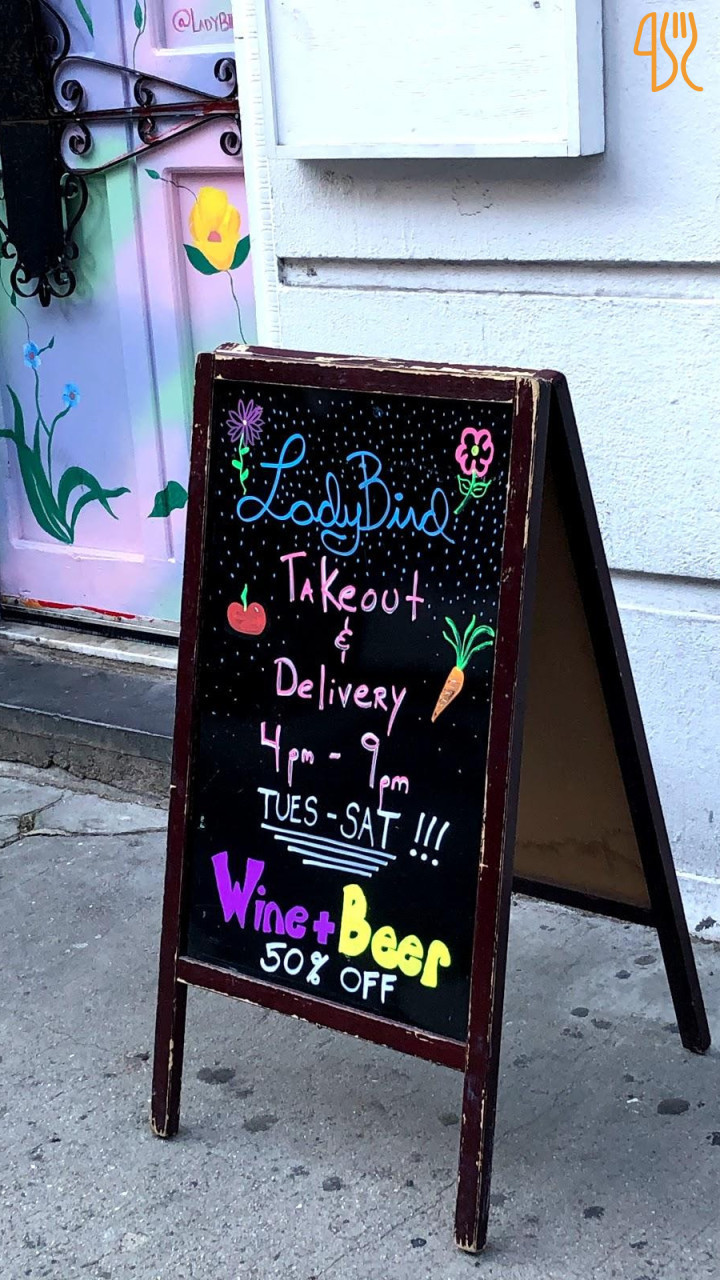 LadyBird
Takeout
&
Delivery
4pm - 9pm
TUES - SAT !!!
Wine + Beer
50% OFF